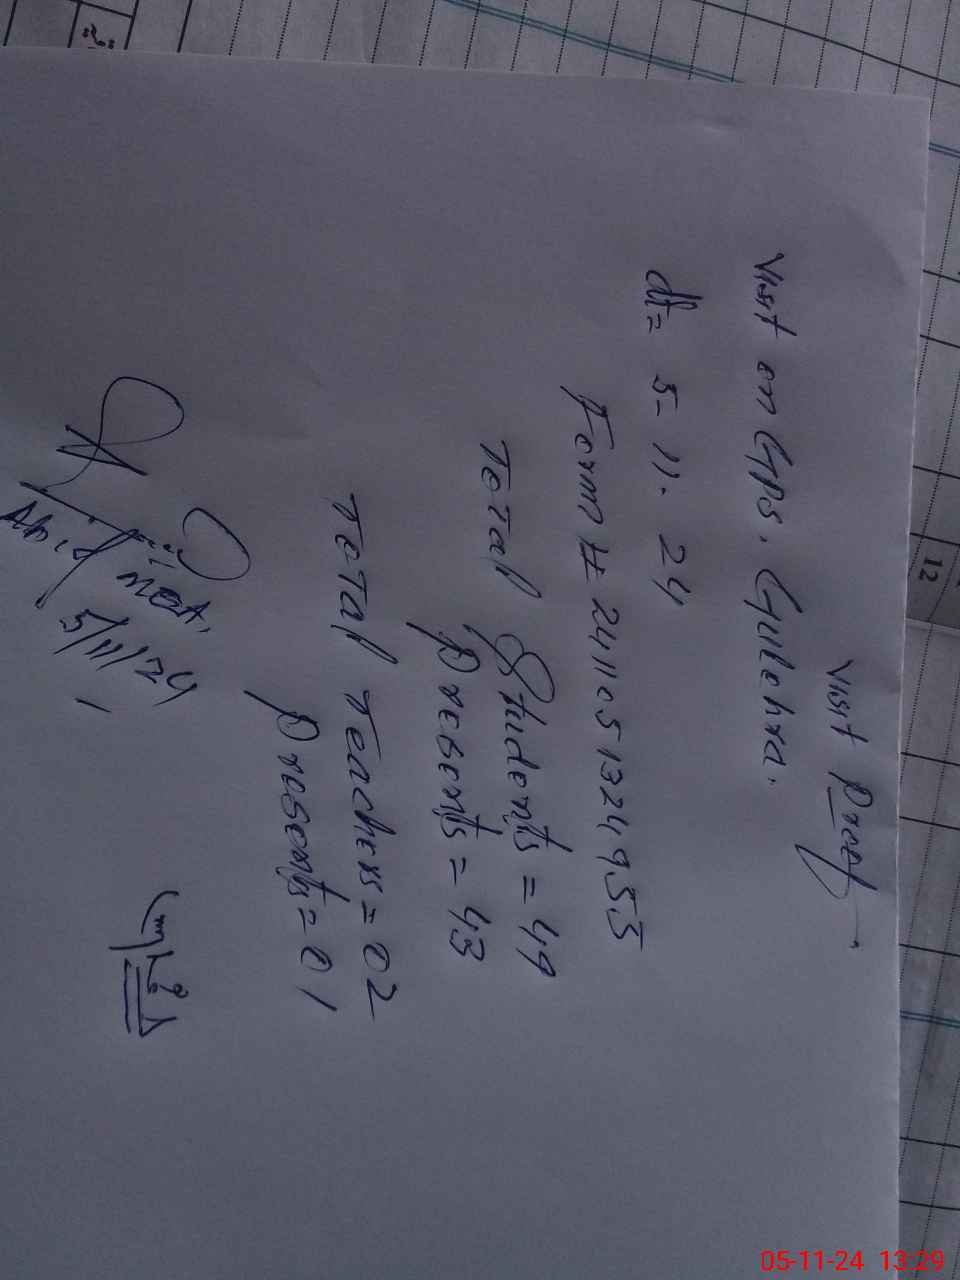 Visit Proof
Visit on GPS. Gulehra.
dt= 5-11-24
Form # 241105132 4953
Total Students = 49
Presents = 43
Total Teachers = 02
Presents = 01
Abid
5/11/24
12
05-11-24 13:29